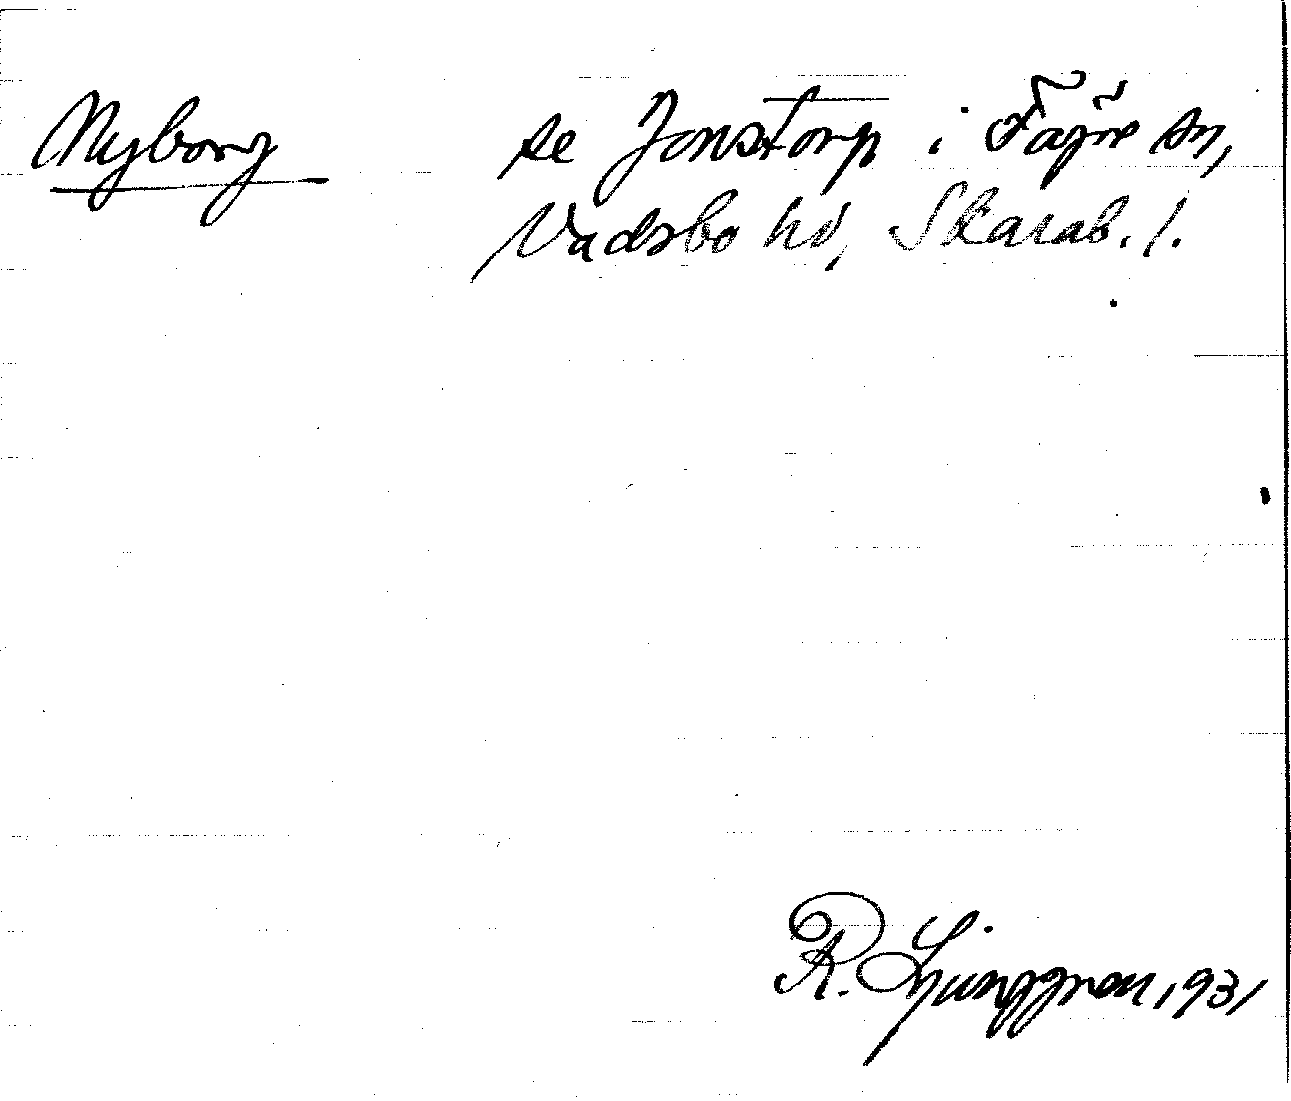 Nyborg se Jonstorp i Fägre sn,
Vadsbo hd, Skarab. l.
R. Ljunggren 1931